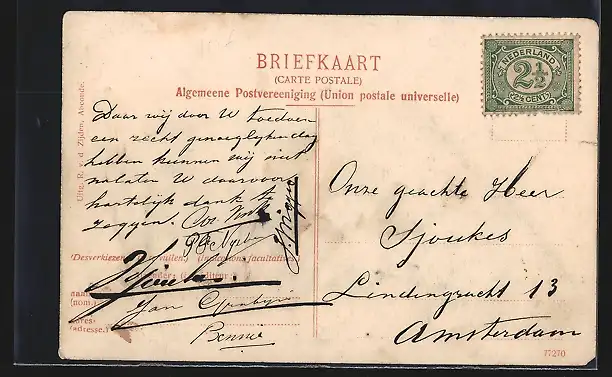 BRIEFKAART
(CARTE POSTALE)
Algemeene Postvereeniging (Union postale universelle)
NEDERLAND
2½
2½ CENT
Uitg. R. v. d. Zijden, Abcoude.
Daar wij door U toedoen
een recht genoegelijken dag
hebben kunnen wij niet
nalaten U daarvoor
hartelijk dank te
zeggen.
(Indications facultatives)
(nom.)
(adresse.)
Jan
Bennie
Onze geachte Heer
Sjoukes
Lindengracht 13
Amsterdam
77270